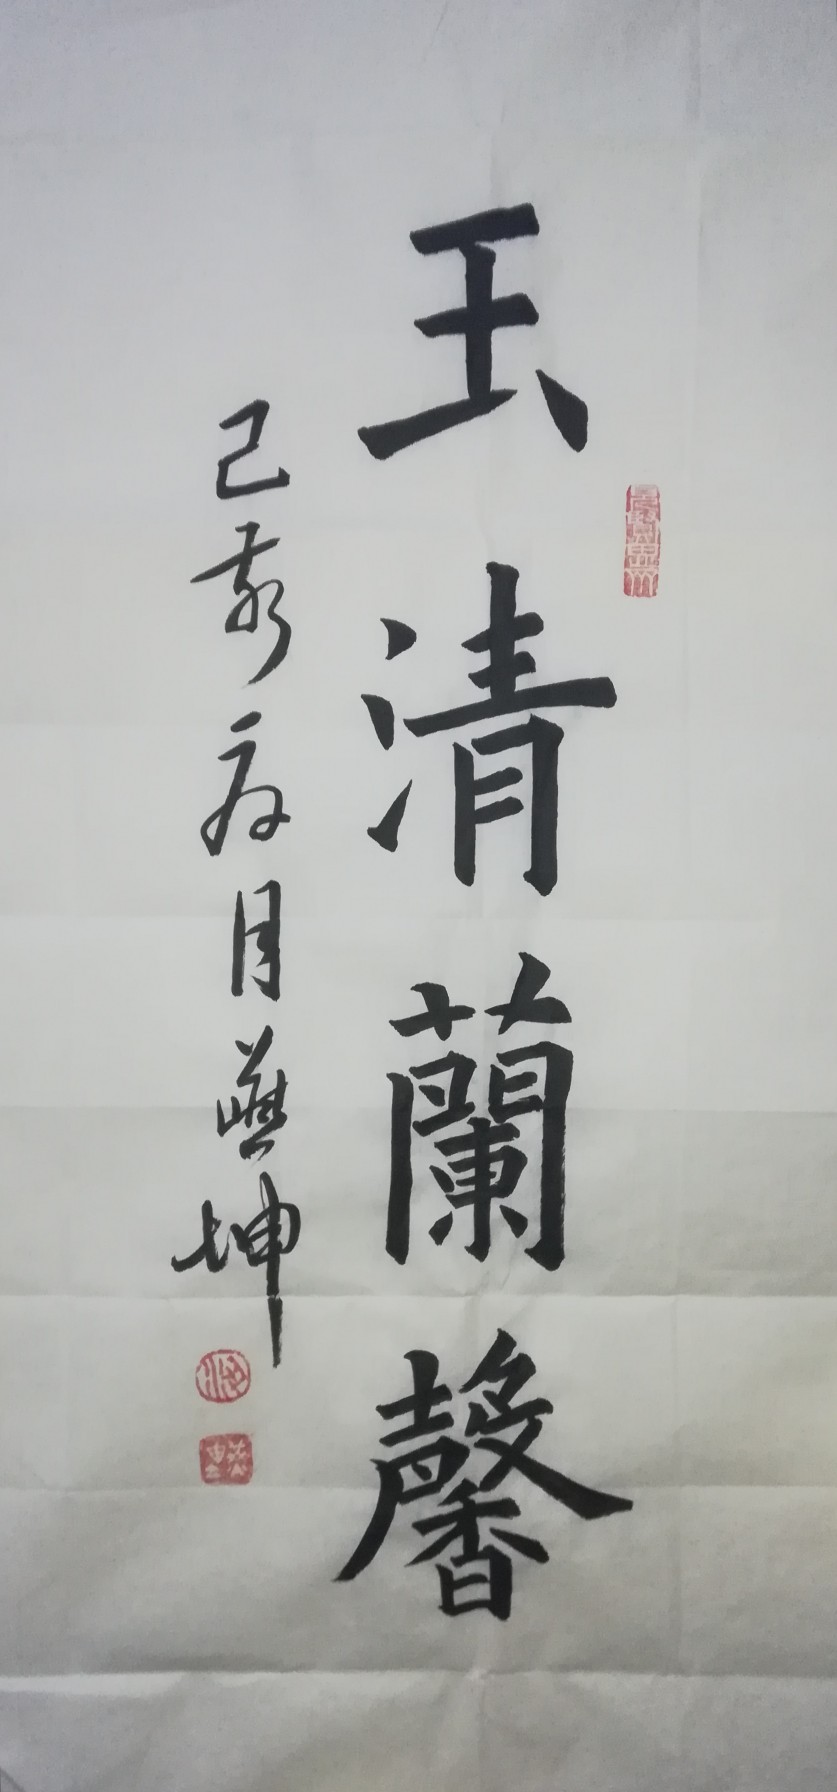 玉清蘭馨
己亥 月燕坤